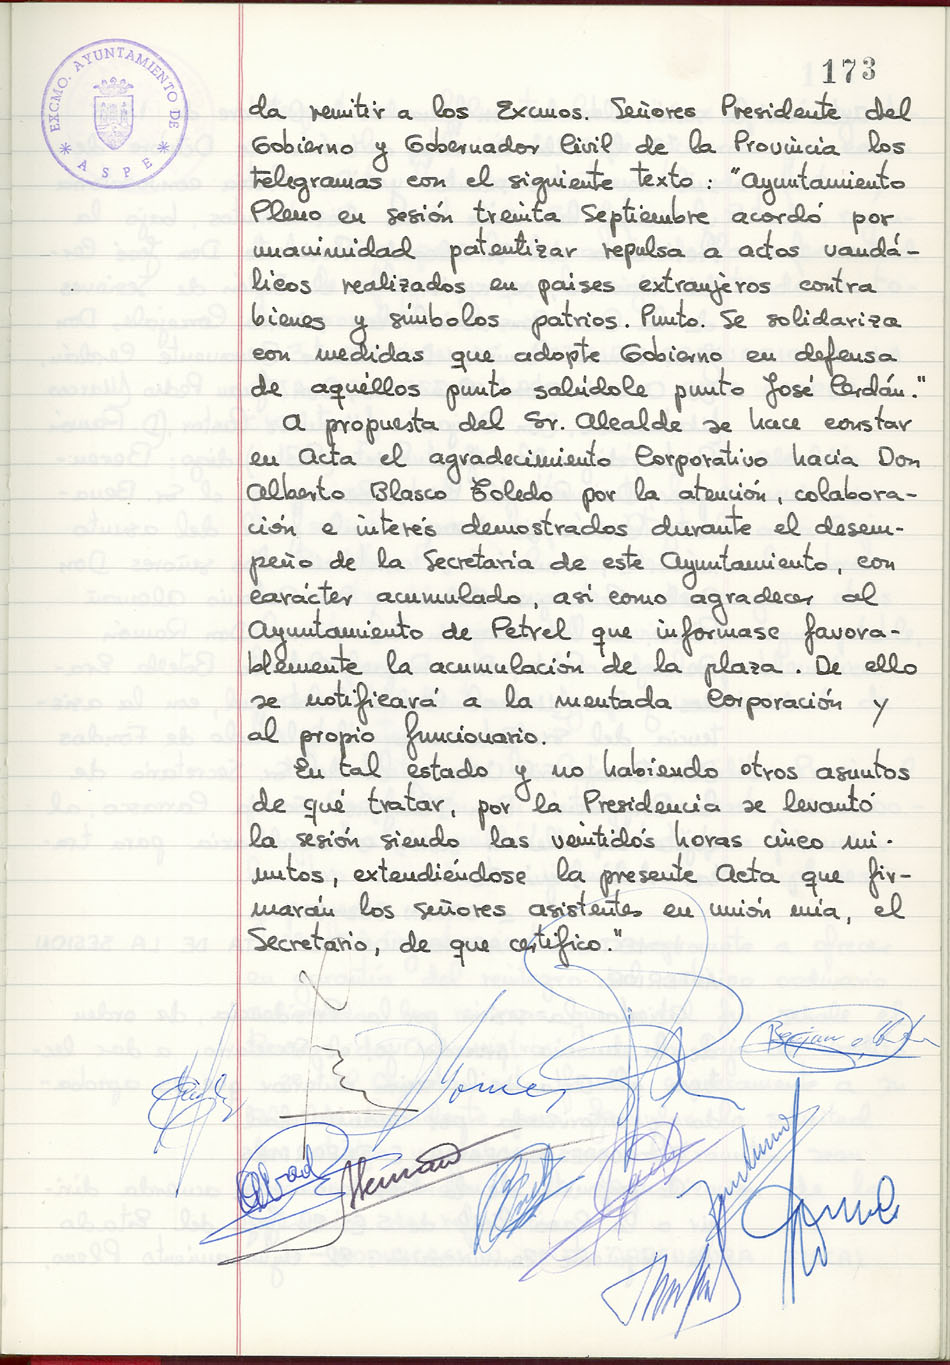 EXCMO. AYUNTAMIENTO DE
* ASPE *
173
da remitir a los Excmos. Señores Presidente del
Gobierno y Gobernador Civil de la Provincia los
telegramas con el siguiente texto: "Ayuntamiento
Pleno en sesión treinta Septiembre acordó por
unanimidad patentizar repulsa a actos vandá-
licos realizados en paises extranjeros contra
bienes y símbolos patrios. Punto. Se solidariza
con medidas que adopte Gobierno en defensa
de aquéllos punto salúdole punto José Cerdán."
A propuesta del Sr. Alcalde se hace constar
en Acta el agradecimiento Corporativo hacia Don
Alberto Blasco Toledo por la atención, colabora-
ción e interés demostrados durante el desem-
peño de la Secretaría de este Ayuntamiento, con
carácter acumulado, así como agradecer al
Ayuntamiento de Petrel que informase favora-
blemente la acumulación de la plaza. De ello
se notificará a la mentada Corporación y
al propio funcionario.
En tal estado y no habiendo otros asuntos
de qué tratar, por la Presidencia se levantó
la sesión siendo las veintidós horas cinco mi-
nutos, extendiéndose la presente Acta que fir-
marán los señores asistentes en unión mía, el
Secretario, de que certifico."